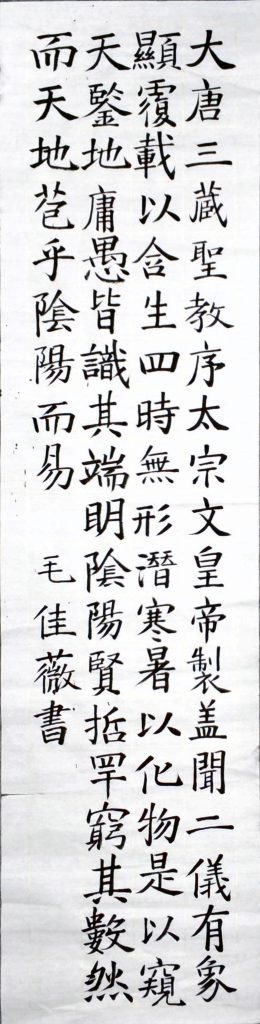 大唐三藏聖教序太宗文皇帝製盖聞二儀有象
顯覆載以含生四時無形潛寒暑以化物是以窺
天鍳地庸愚皆識其端明陰陽賢哲罕窮其數然
而天地苞乎陰陽而易 毛佳薇書